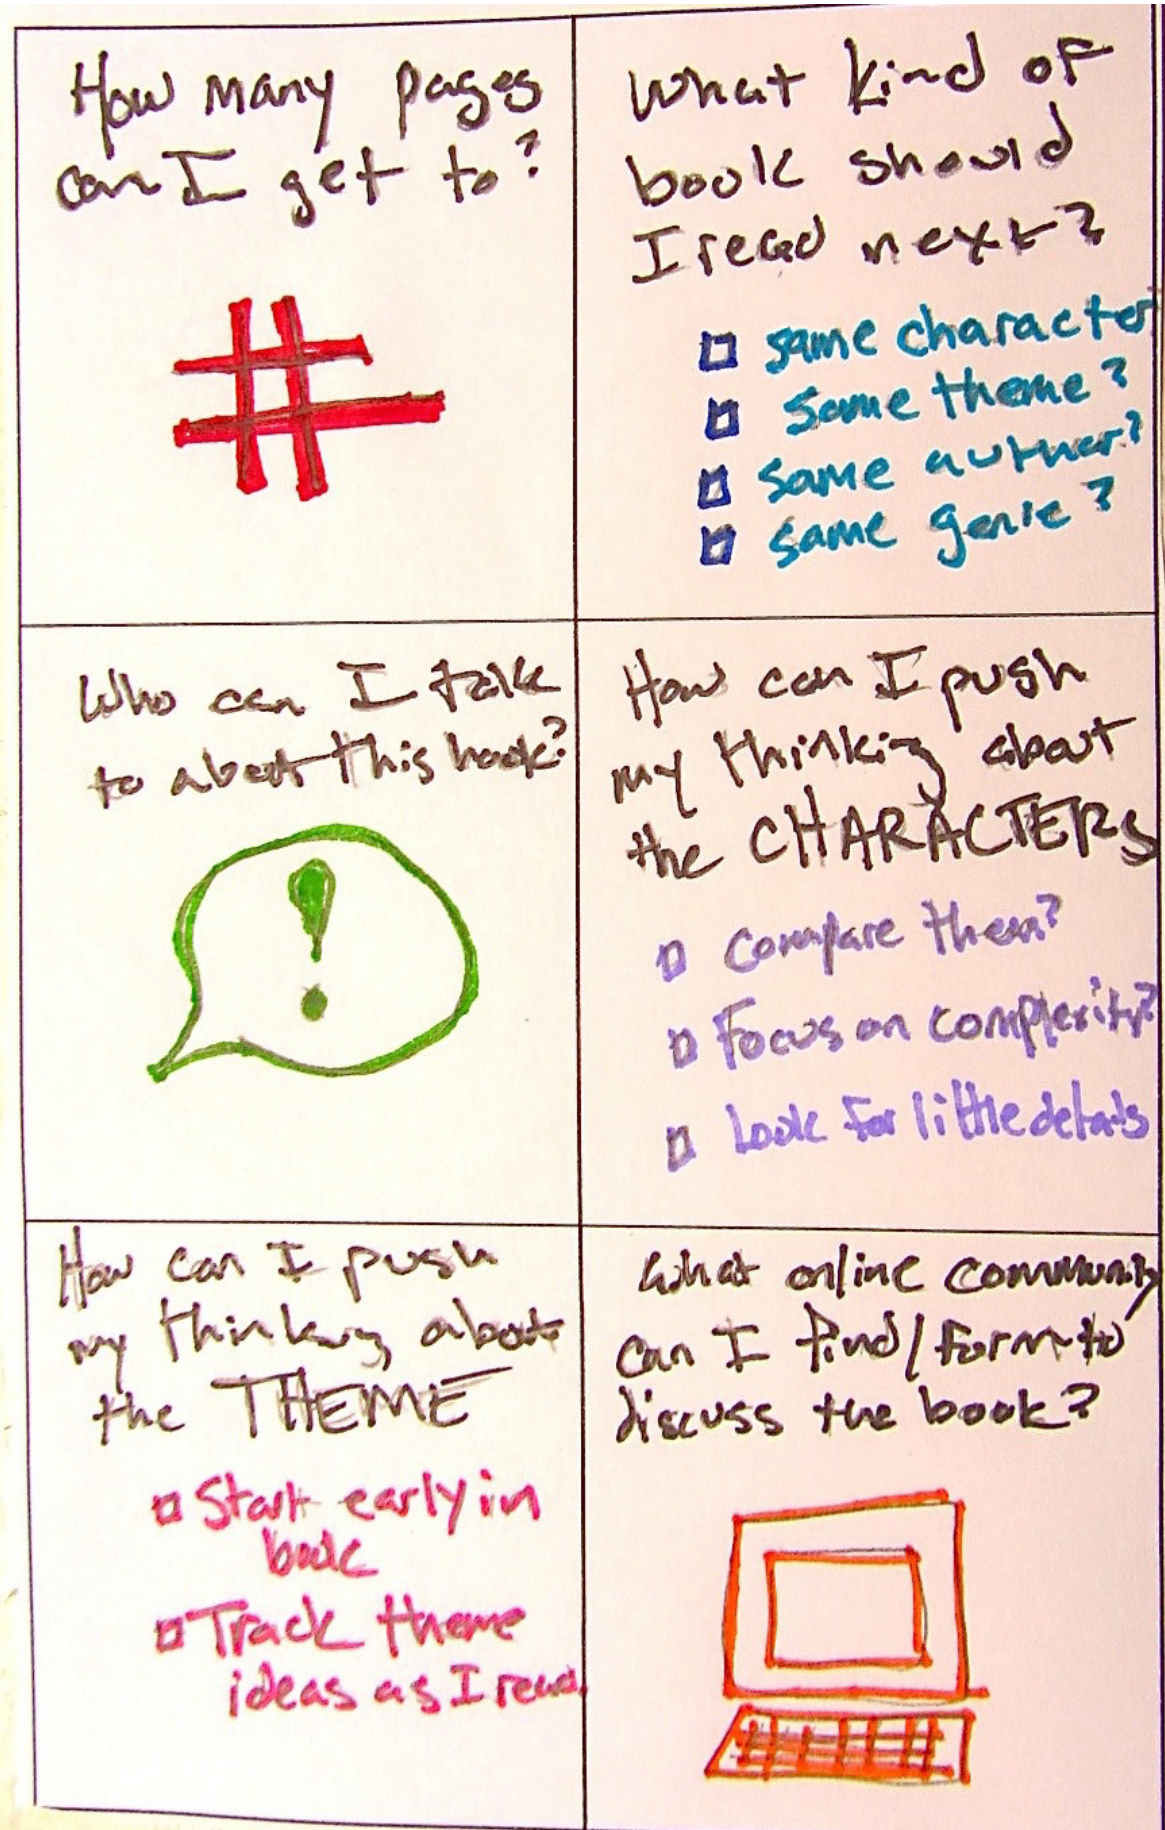 How many pages
can I get to?
#
What kind of
book should
I read next?
same character
same theme?
same author?
same genre?
Who can I talk
to about this book?
!
How can I push
my thinking about
the CHARACTERS
Compare them?
Focus on complexity?
Look for little details
How can I push
my thinking about
the THEME
Start early in
book
Track theme
ideas as I read
What online community
can I find/form to
discuss the book?